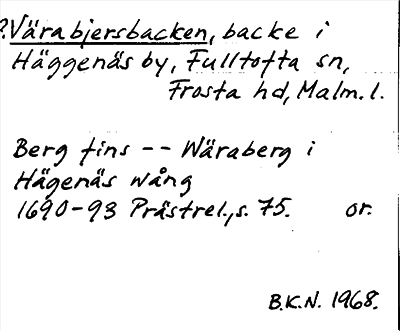 ?Värabjersbacken, backe i
Häggenäs by, Fulltofta sn,
Frosta hd, Malm. l.
Berg fins -- Wäraberg i
Hägenäs wång
1690-93 Prästrel., s. 75. or.
B.K.N. 1968.